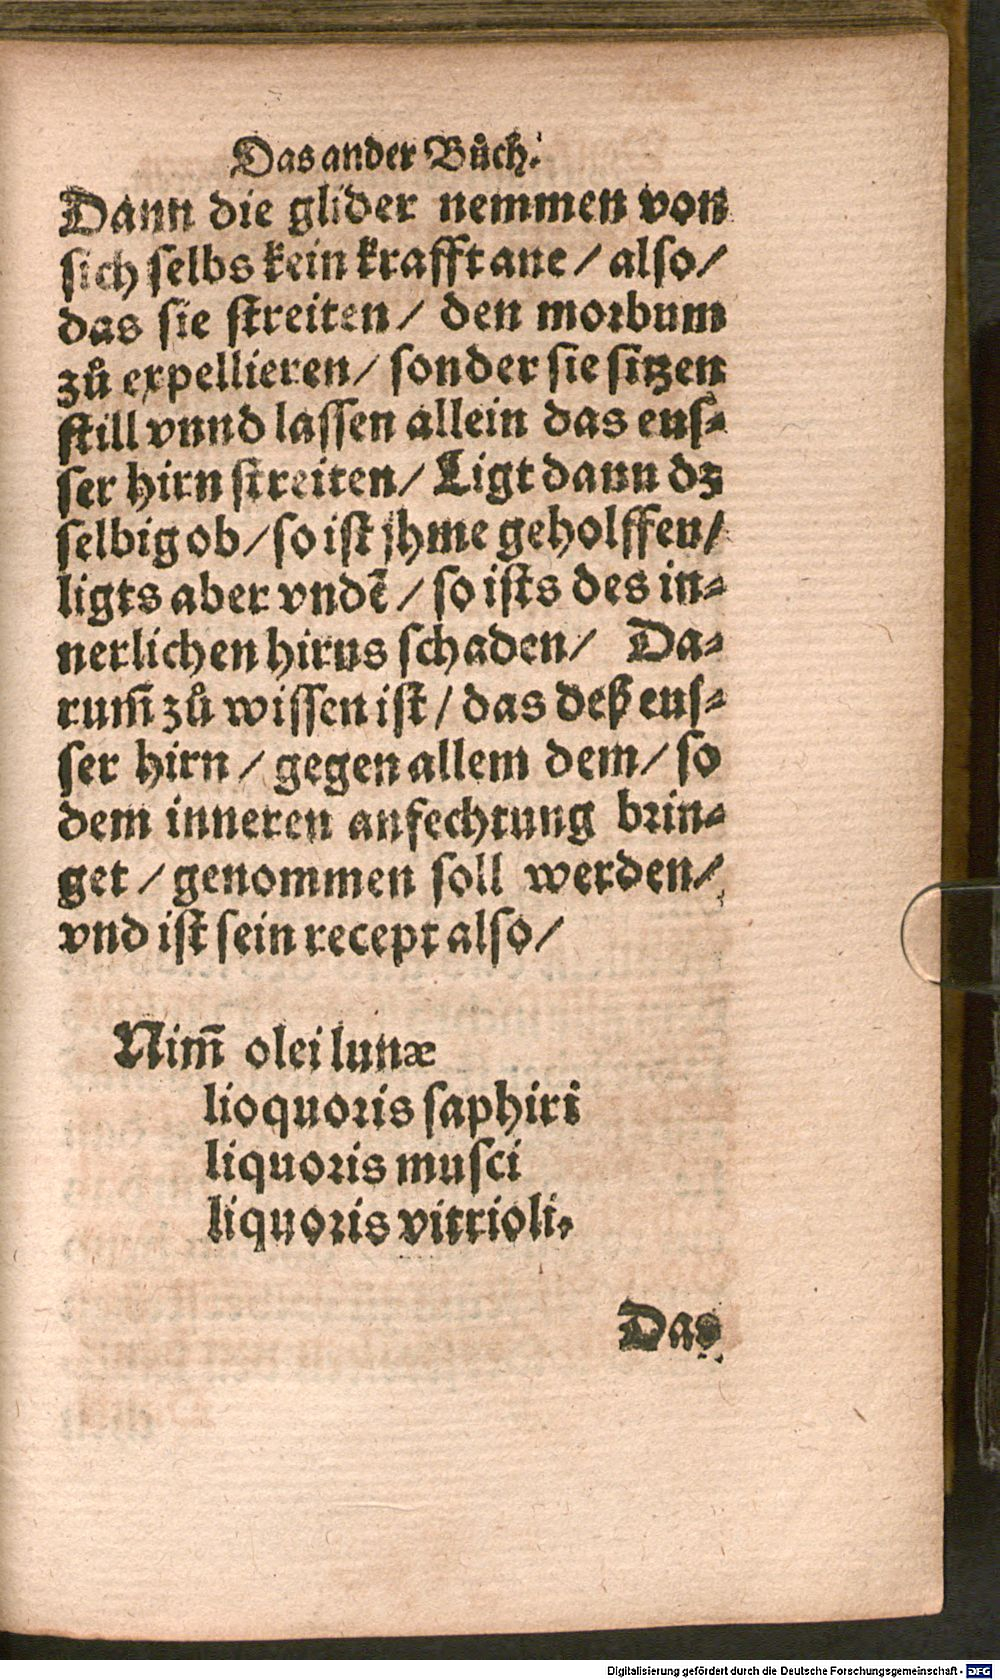 Das ander Bůch.
Dann die glider nemmen von
sich selbs kein krafft ane / also /
das sie streiten / den morbum
zů expellieren / sonder sie sitzen
still vnnd lassen allein das eus⸗
ser hirn streiten / Ligt dann dz
selbig ob / so ist jhme geholffen /
ligts aber vndẽ / so ists des in⸗
nerlichen hirns schaden / Da⸗
rum̃ zů wissen ist / das deß eus⸗
ser hirn / gegen allem dem / so
dem inneren anfechtung brin⸗
get / genommen soll werden /
vnd ist sein recept also /
Nim̃ olei lunæ
lioquoris saphiri
liquoris musci
liquoris vitrioli.
Das
Digitalisierung gefördert durch die Deutsche Forschungsgemeinschaft - DFG